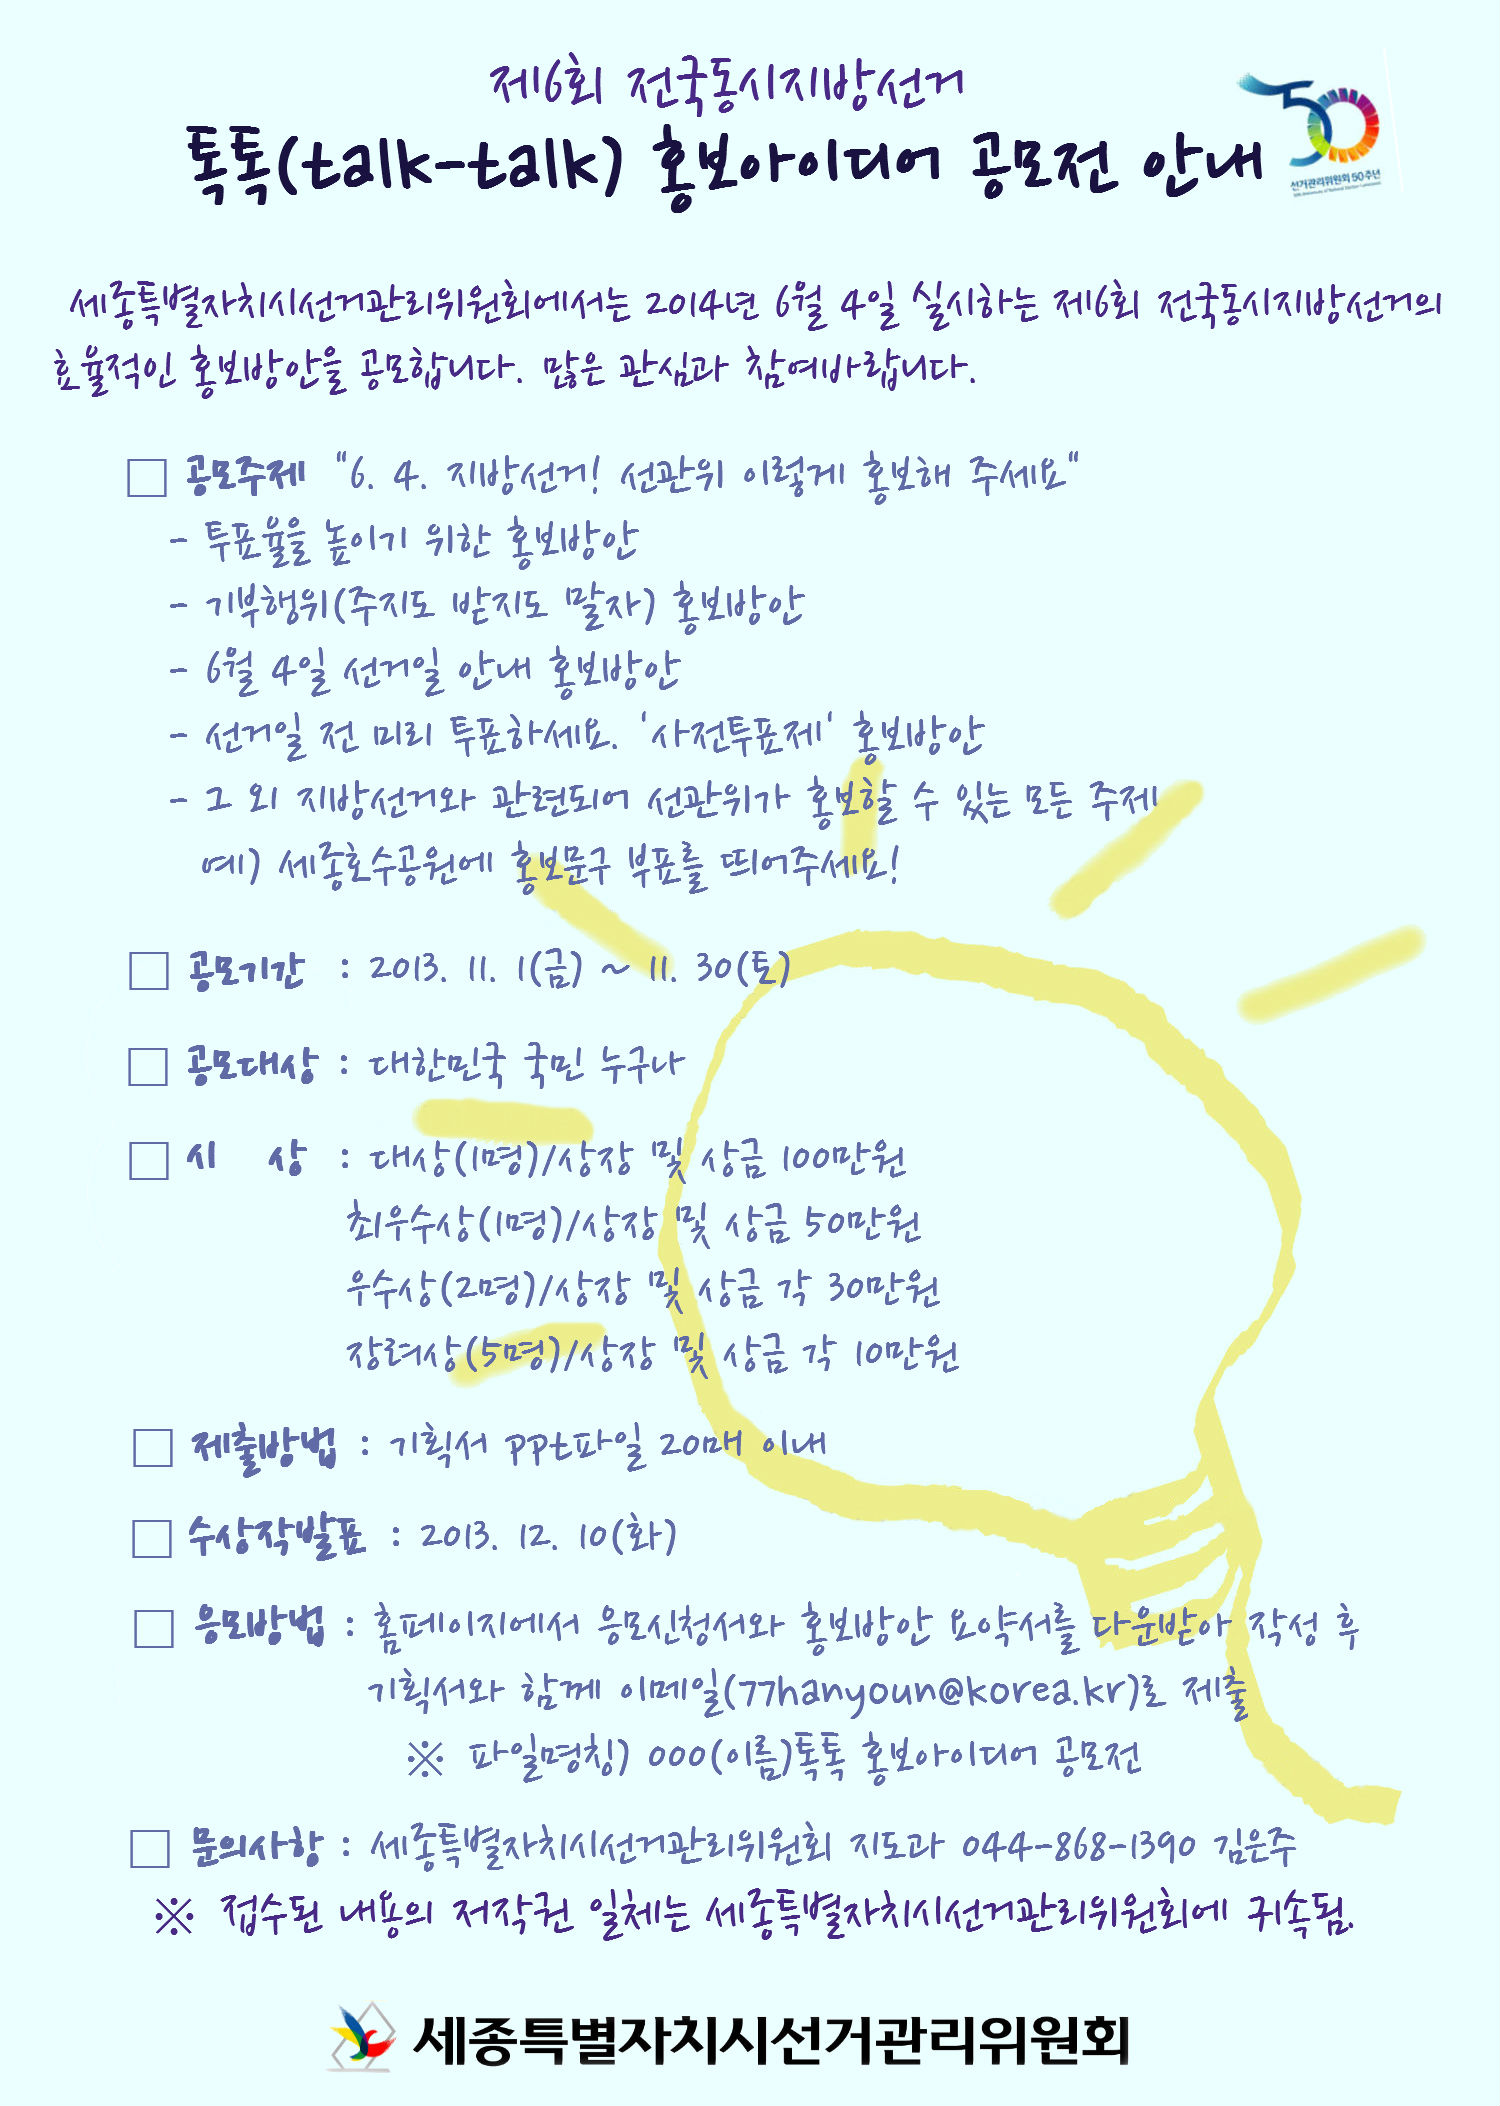 제6회 전국동시지방선거
톡톡(talk-talk) 홍보아이디어 공모전 안내
50
선거관리위원회 50주년
세종특별자치시선거관리위원회에서는 2014년 6월 4일 실시하는 제6회 전국동시지방선거의
효율적인 홍보방안을 공모합니다. 많은 관심과 참여바랍니다.
□ 공모주제 "6. 4. 지방선거! 선관위 이렇게 홍보해 주세요"
- 투표율을 높이기 위한 홍보방안
- 기부행위(주지도 받지도 말자) 홍보방안
- 6월 4일 선거일 안내 홍보방안
- 선거일 전 미리 투표하세요. '사전투표제' 홍보방안
- 그 외 지방선거와 관련되어 선관위가 홍보할 수 있는 모든 주제
예) 세종호수공원에 홍보문구 부표를 띄어주세요!
□ 공모기간 : 2013. 11. 1(금) ~ 11. 30(토)
□ 공모대상 : 대한민국 국민 누구나
□ 시 상 : 대상(1명)/상장 및 상금 100만원
최우수상(1명)/상장 및 상금 50만원
우수상(2명)/상장 및 상금 각 30만원
장려상(5명)/상장 및 상금 각 10만원
□ 제출방법 : 기획서 ppt파일 20매 이내
□ 수상작발표 : 2013. 12. 10(화)
□ 응모방법 : 홈페이지에서 응모신청서와 홍보방안 요약서를 다운받아 작성 후
기획서와 함께 이메일(77hanyoun@korea.kr)로 제출
※ 파일명칭) 000(이름)톡톡 홍보아이디어 공모전
□ 문의사항 : 세종특별자치시선거관리위원회 지도과 044-868-1390 김은주
※ 접수된 내용의 저작권 일체는 세종특별자치시선거관리위원회에 귀속됨.
세종특별자치시선거관리위원회